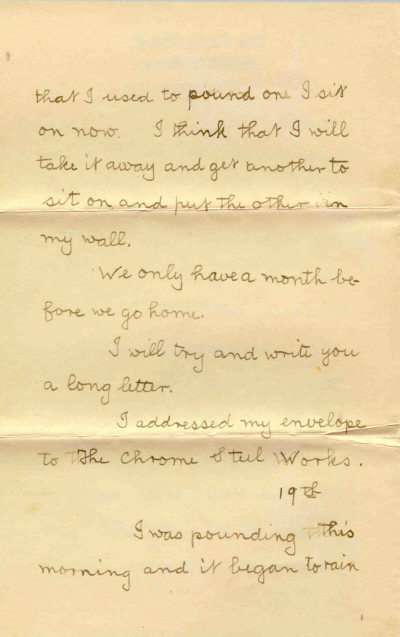 that I used to pound one I sit
on now. I think that I will
take it away and get another to
sit on, and put the other in
my wall.
We only have a month be-
fore we go home.
I will try and write you
a long letter.
I addressed my envelope
to The Chrome Steel Works.
19th
I was pounding this
morning and it began to rain